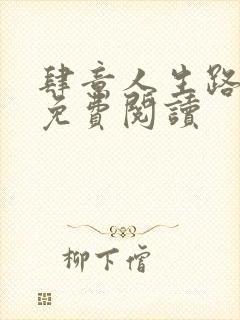 肆意人生路
免費閱讀
柳下惛